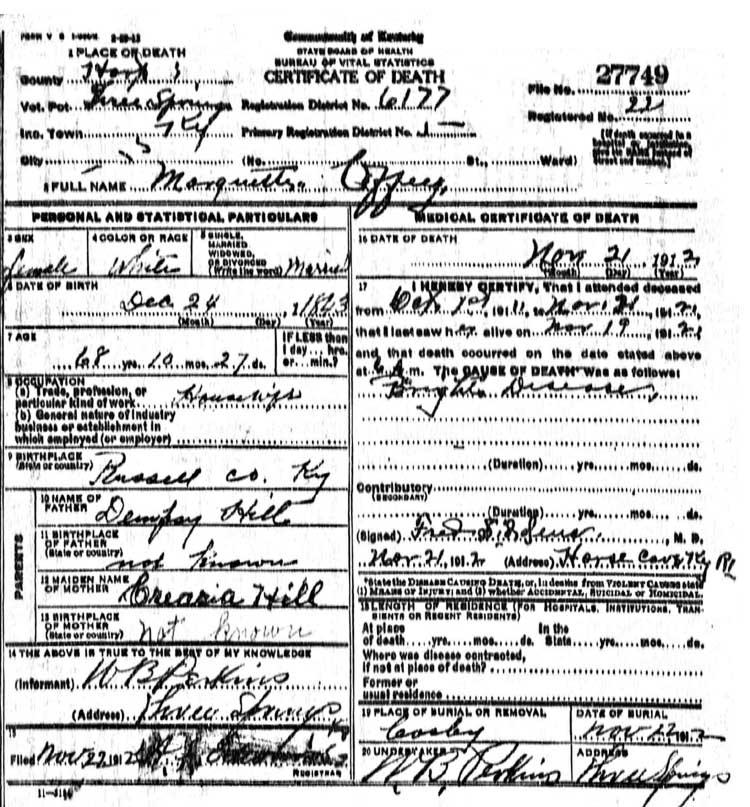 Commonwealth of Kentucky
STATE BOARD OF HEALTH
BUREAU OF VITAL STATISTICS
CERTIFICATE OF DEATH
1 PLACE OF DEATH
County Hart
Vot. Pct. Three Springs Registration District No. 6177
Inc. Town Ky Primary Registration District No.
City (No. St., Ward)
File No. 27749
Registered No. 22
2 FULL NAME Coffey
PERSONAL AND STATISTICAL PARTICULARS
3 SEX
female
4 COLOR OR RACE
White
5 SINGLE, MARRIED WIDOWED, OR DIVORCED (Write the word) Married
6 DATE OF BIRTH
Dec 24
(Month) (Day) (Year)
7 AGE
68 yrs. 10 mos. 27 ds.
IF LESS than
1 day... hrs.
or... min.?
8 OCCUPATION
(a) Trade, profession, or
particular kind of work Housewife
(b) General nature of industry
business or establishment in
which employed (or employer)
9 BIRTHPLACE
(State or country) Russell Co. Ky
PARENTS
10 NAME OF
FATHER Dempsy Hill
11 BIRTHPLACE
OF FATHER
(State or country) not known
12 MAIDEN NAME
OF MOTHER Crearia Hill
13 BIRTHPLACE
OF MOTHER
(State or country) Not known
14 THE ABOVE IS TRUE TO THE BEST OF MY KNOWLEDGE
(Informant) W B Perkins
(Address) Three Springs
15
Filed Nov 22, 1912
REGISTRAR
MEDICAL CERTIFICATE OF DEATH
16 DATE OF DEATH
Nov 21, 1912
(Month) (Day) (Year)
17 I HEREBY CERTIFY, That I attended deceased
from Oct 1st, 1911, to Nov. 21, 1912,
that I last saw her alive on Nov 19, 1912,
and that death occurred on the date stated above
at m. The CAUSE OF DEATH* was as follows:
Brights Disease,
(Duration) yrs. mos. ds.
Contributory
(SECONDARY)
(Duration) yrs. mos. ds.
(Signed) Fred M. D.
Nov 21, 1912 (Address) Horse Cave Ky
*State the DISEASE CAUSING DEATH, or, in deaths from VIOLENT CAUSES state
(1) MEANS OF INJURY; and (2) whether ACCIDENTAL, SUICIDAL or HOMICIDAL.
18 LENGTH OF RESIDENCE (FOR HOSPITALS, INSTITUTIONS, TRANSIENTS OR RECENT RESIDENTS)
At place In the
of death yrs. mos. ds. State yrs. mos. ds.
Where was disease contracted,
If not at place of death?
Former or
usual residence
19 PLACE OF BURIAL OR REMOVAL
Cosby
DATE OF BURIAL
Nov 22, 1912
20 UNDERTAKER
W B. Perkins
ADDRESS
Three Springs